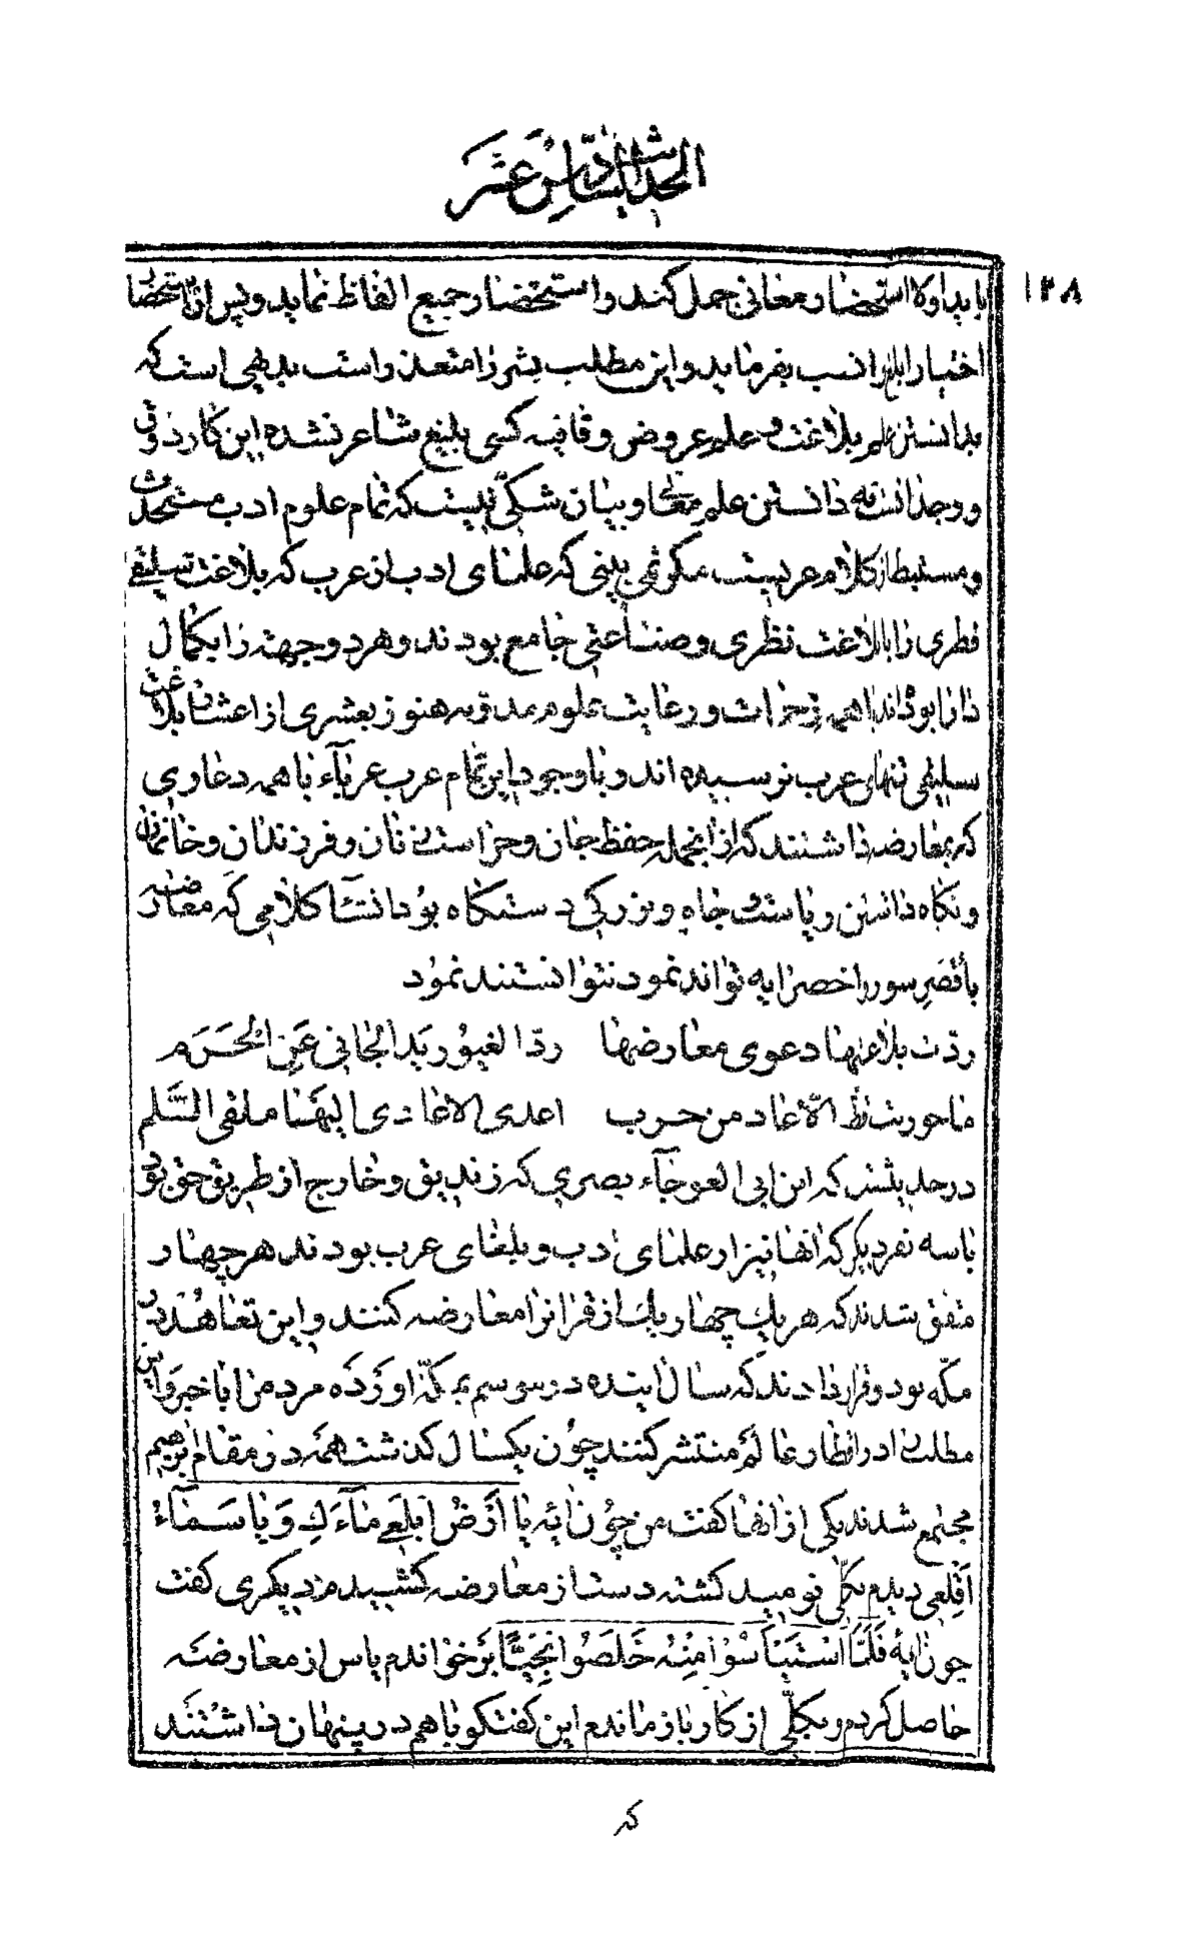 الحدیث السادس عشر
۱۲۸
باید اولا استحضار معانی جمل کند و استحضار جمیع الفاظ نماید و پس از استحضا
اختیار ابلغ و انسب بفرماید و این مطلب بشر را متعذر است بدیهی است که
بدانستن علم بلاغت و علم عروض و قافیه کسی بلیغ شاعر نشده این کار ذوقی
و وجدانست نه دانستن علم معانی و بیان شکی نیست که تمام علوم ادب مستحدث
و مستنبط از کلام عربیست مگر نمی بینی که علمای ادب از عرب که بلاغت سلیقی
فطری را با بلاغت نظری و صناعتی جامع بودند و هر دو جهت را بکمال
دارا بوده‌اند با همه و رعایت علوم مدونه هنوز بعشری از اعشار بلاغت
سلیقی تنهای عرب نرسیده اند و با وجود این تمام عرب عرباء با همه دعاوی
که بمعارضه داشتند که از انجمله حفظ جان و حراست زنان و فرزندان و خانمان
و نگاه داشتن ریاست و جاه و بزرگی دستگاه بود انشاء کلامی که معارضه
بأقصر سور و اخصر ایه تواند نمود نتوانستند نمود
ردّت بلاغتها دعوی معارضها ردّ الغیور ید الجانی عن الحرم
ما حوربت قط الّا عاد من حرب اعدی الاعادی الیها ملقی السّلم
در حدیثست که ابن ابی العوجآء بصری که زندیق و خارج از طریق حق بود
با سه نفر دیگر که انها نیز از علمای ادب و بلغای عرب بودند هر چهار
متفق شدند که هر یک چهار یک از قرانرا معارضه کنند و این تعاهد در
مکّه بود و قرار دادند که سال اینده در موسم بمکّه اورده مردم را با خبر و این
مطلب را در اقطار عالم منتشر کنند چون یکسال گذشت همه در مقام ابرهیم
مجتمع شدند یکی از انها گفت من چون ایه یا أَرْضُ ابْلَعِي مآءَكِ وَيا سَمآءُ
أَقْلِعِي دیدم بکلّی نومید گشته دست از معارضه کشیدم دیگری گفت
چون ایه فَلَمَّا اسْتَيْأَسُوا مِنْهُ خَلَصُوا نَجِيًّا بر خواندم یاس از معارضه
حاصل کردم و بکلّی از کار باز ماندم این گفتگو با هم در پنهان داشتند
که